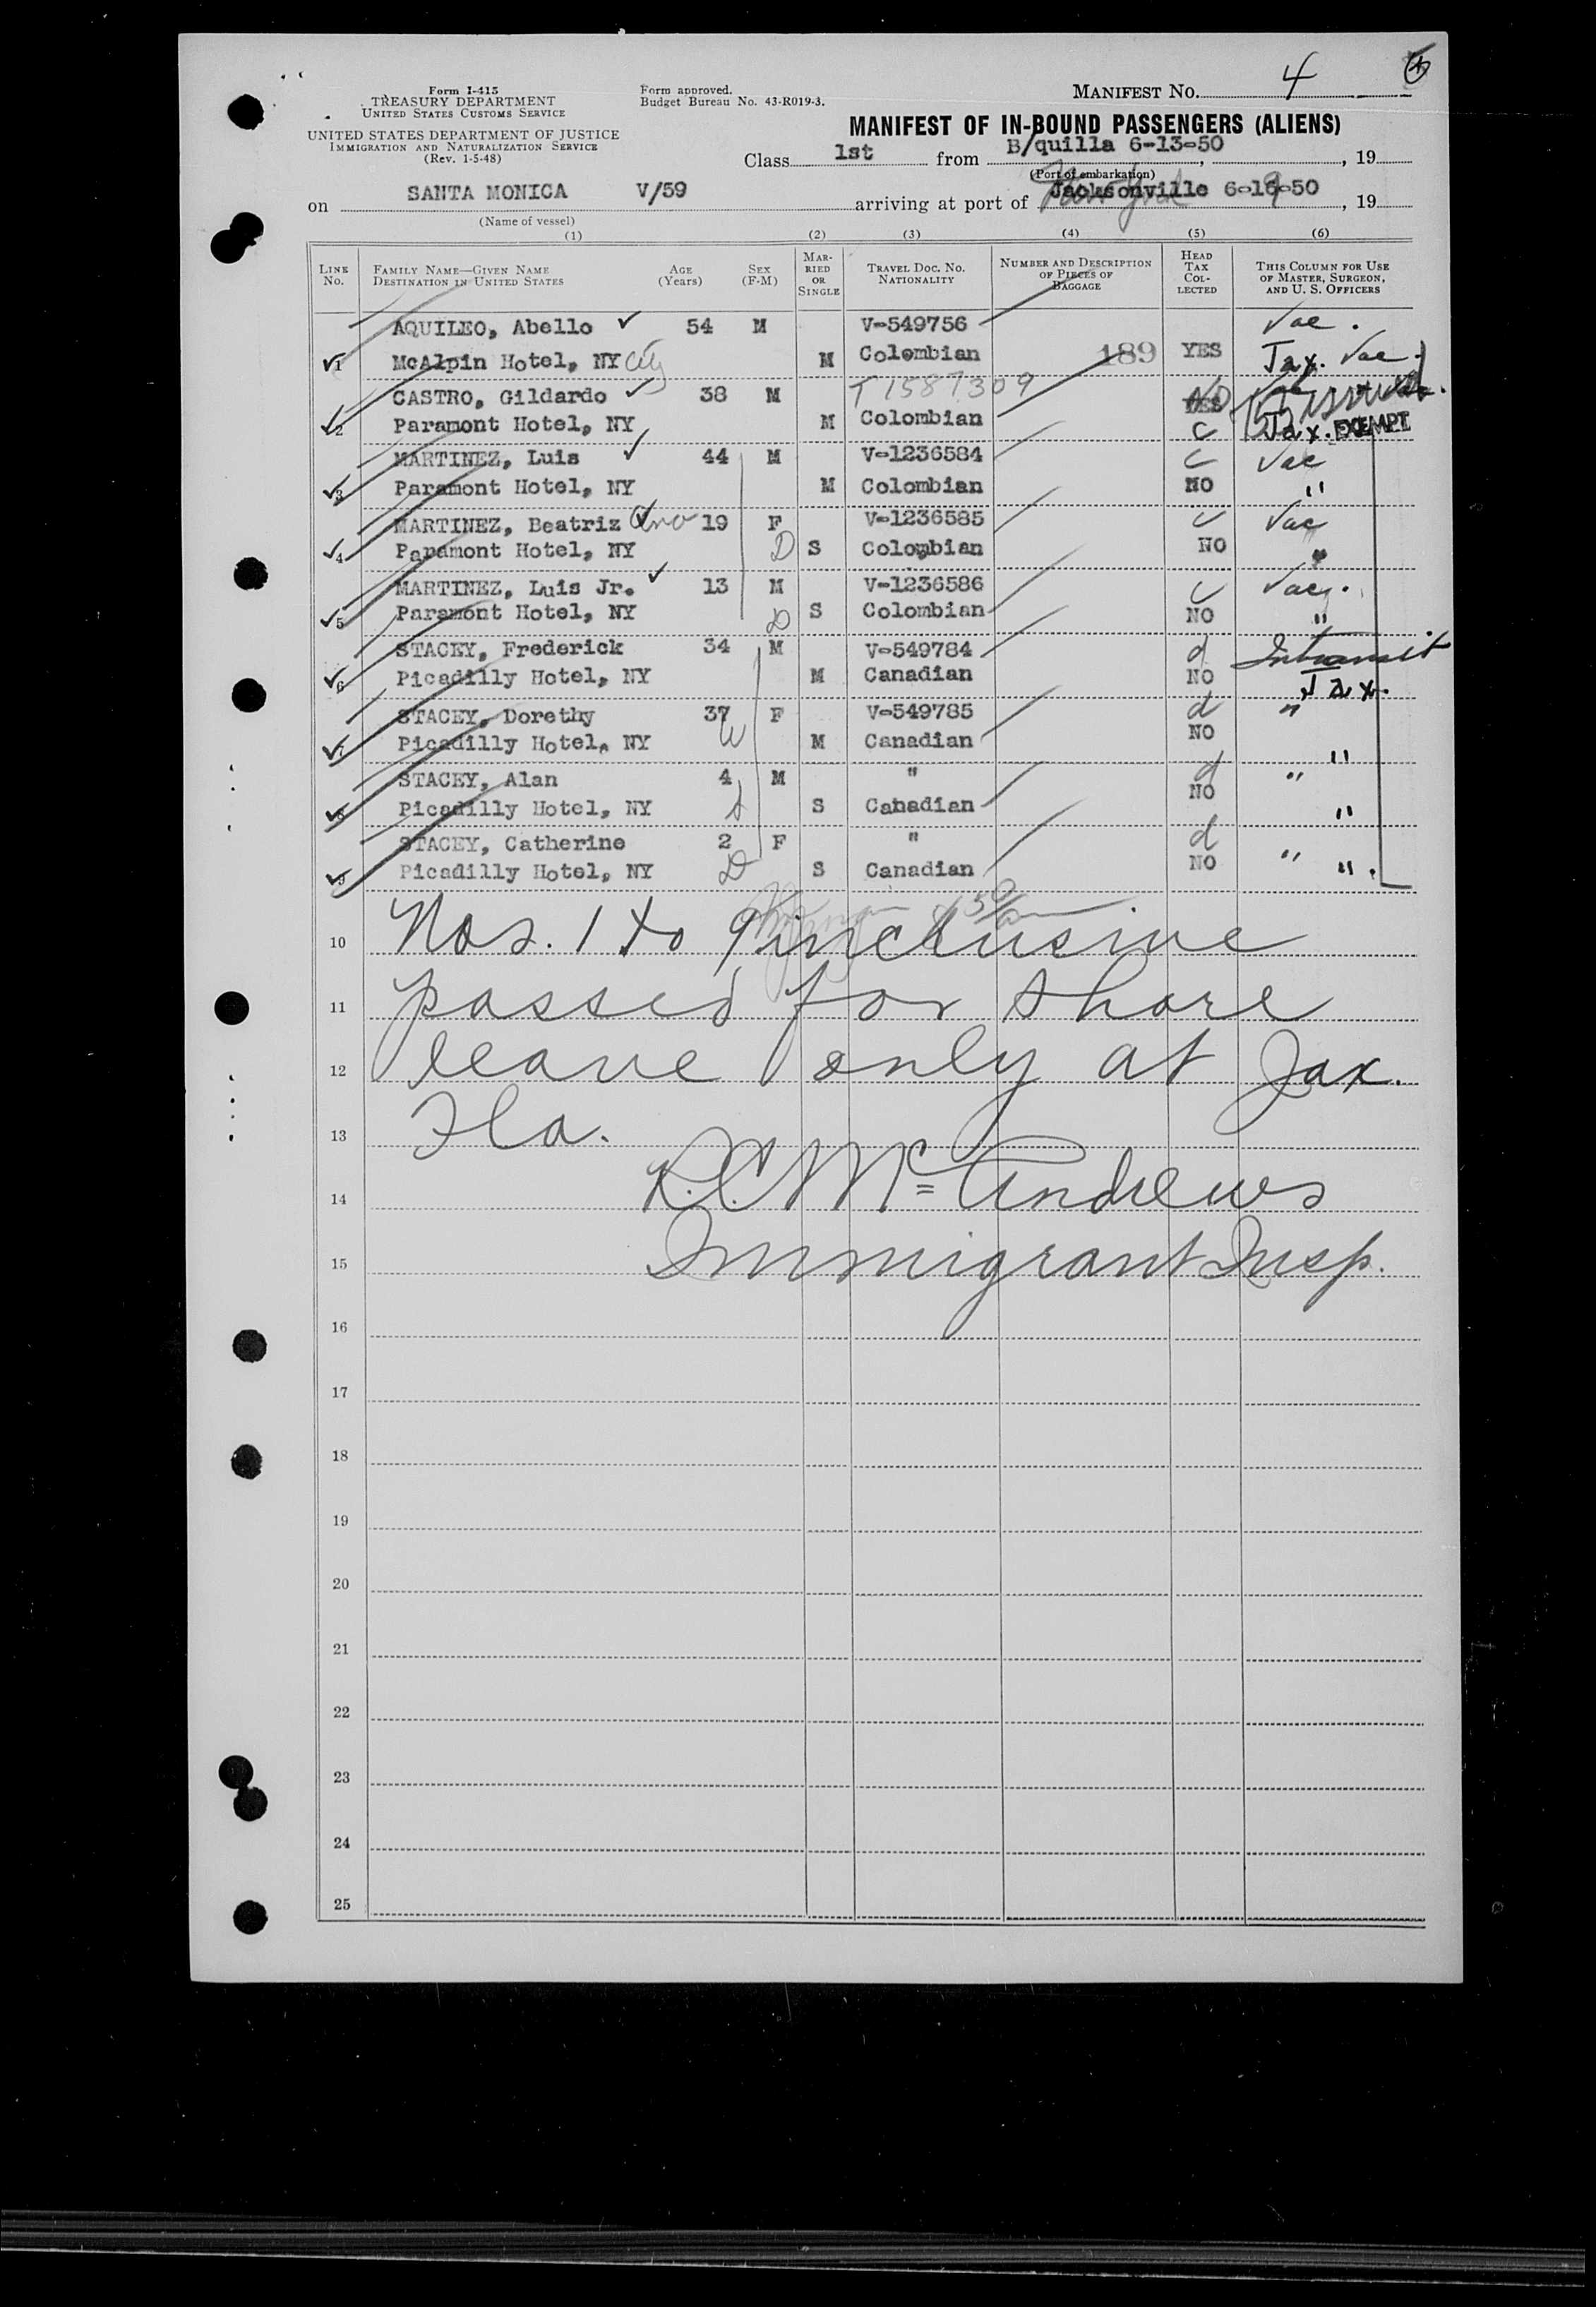 MANIFEST NO. 4
Form I-415
TREASURY DEPARTMENT
UNITED STATES CUSTOMS SERVICE
Form approved.
Budget Bureau No. 43-R019-3.
UNITED STATES DEPARTMENT OF JUSTICE
IMMIGRATION AND NATURALIZATION SERVICE
(Rev. 1-5-48)
MANIFEST OF IN-BOUND PASSENGERS (ALIENS)
Class 1st from B/quilla 6-13-50, 19
(Port of embarkation)
on SANTA MONICA V/59 arriving at port of Jacksonville 6-19-50, 19
New York
(Name of vessel)
(1) (2) (3) (4) (5) (6)
LINE NO. FAMILY NAME—GIVEN NAME DESTINATION IN UNITED STATES AGE (Years) SEX (F-M) MARRIED OR SINGLE TRAVEL DOC. NO. NATIONALITY NUMBER AND DESCRIPTION OF PIECES OF BAGGAGE HEAD TAX COLLECTED THIS COLUMN FOR USE OF MASTER, SURGEON, AND U. S. OFFICERS
AQUILEO, Abello ✓ 54 M V-549756 Vac.
1 McAlpin Hotel, NY City M Colombian 189 YES Jax. Vac.
CASTRO, Gildardo ✓ 38 M T1587309 NO
2 Paramont Hotel, NY M Colombian YES C Jax. EXEMPT
MARTINEZ, Luis ✓ 44 M V-1236584 C Vac
3 Paramont Hotel, NY M Colombian NO "
MARTINEZ, Beatriz 19 F V-1236585 C Vac
4 Paramont Hotel, NY D S Colombian NO "
MARTINEZ, Luis Jr. ✓ 13 M V-1236586 C Vac.
5 Paramont Hotel, NY D S Colombian NO "
STACEY, Frederick 34 M V-549784 d Intransit
6 Picadilly Hotel, NY M Canadian NO Jax.
STACEY, Dorethy 37 F V-549785 d "
7 Picadilly Hotel, NY W M Canadian NO "
STACEY, Alan 4 M " d "
8 Picadilly Hotel, NY S Canadian NO "
STACEY, Catherine 2 F " d "
9 Picadilly Hotel, NY D S Canadian NO "
10 Nos. 1 to 9 inclusive
11 passed for shore
12 leave only at Jax.
13 Fla.
14 R.C. McAndrews
15 Immigrant Insp.
16
17
18
19
20
21
22
23
24
25